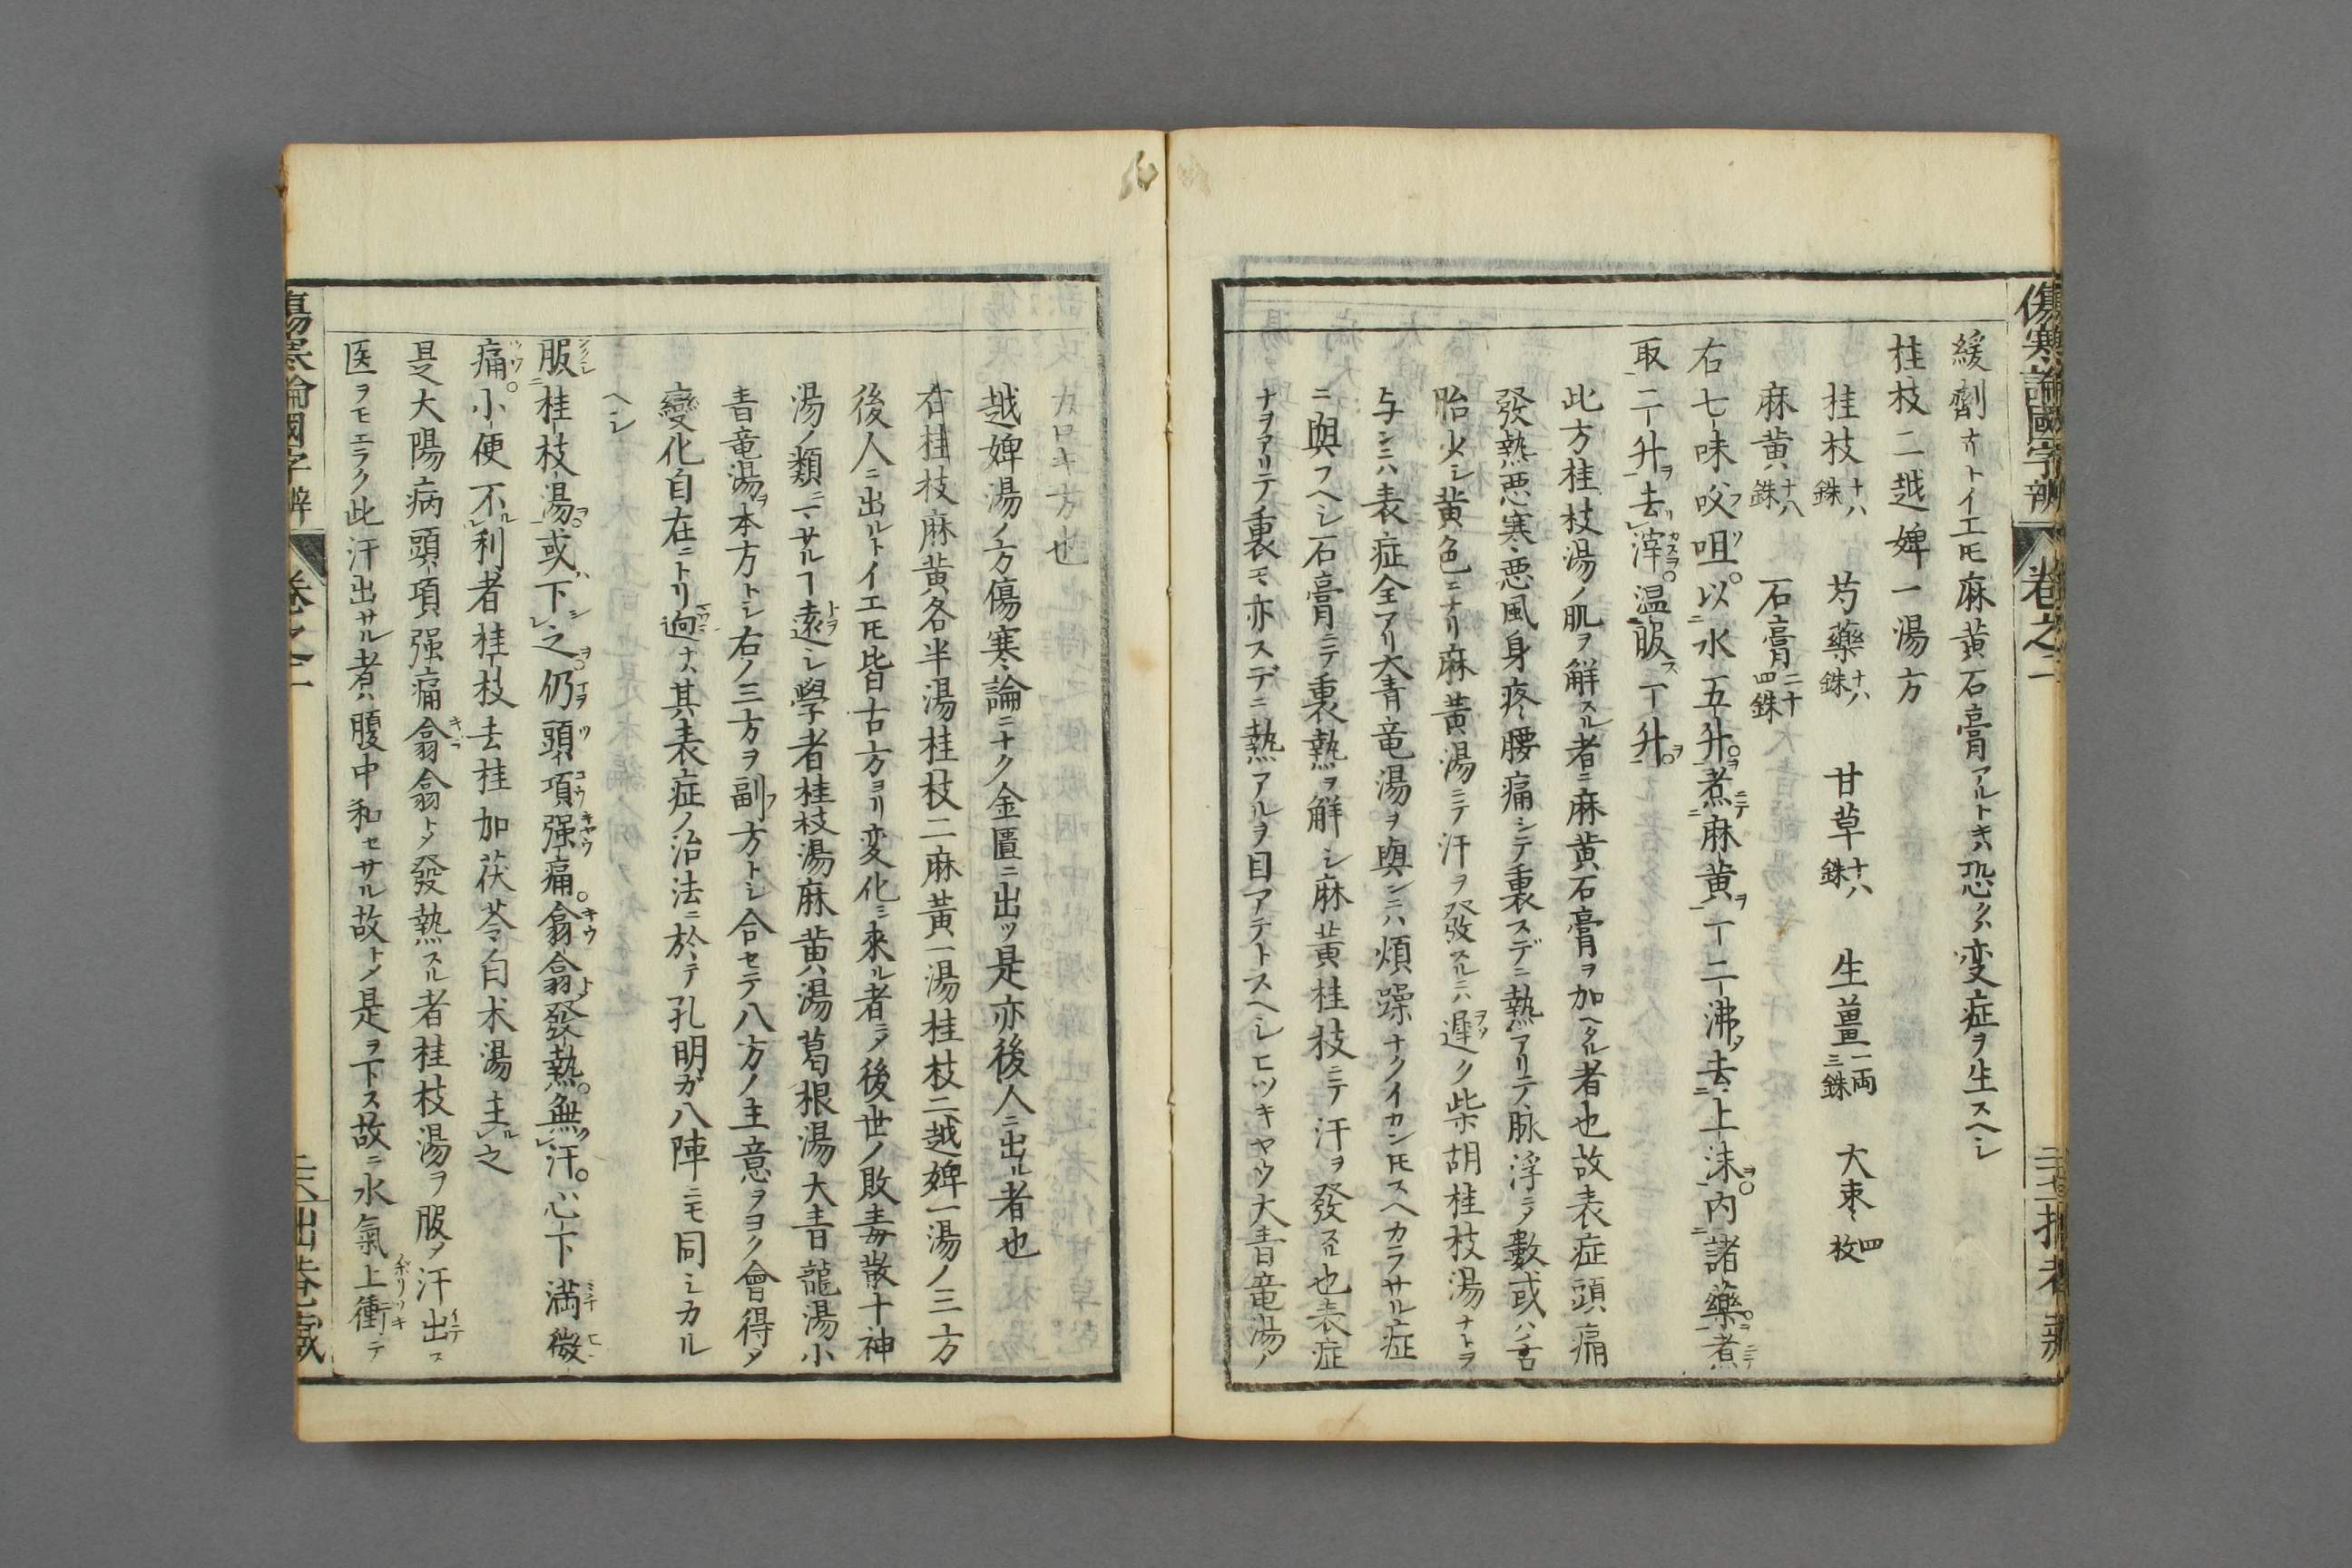 傷寒論國字辨 巻之二
緩劑ナリトイエ𪜈麻黄石膏アルトキハ恐クハ変症ヲ生スヘシ
桂枝二越婢一湯方
桂枝十八銖 芍藥十八銖 甘草十八銖 生薑一両三銖 大棗四枚
麻黄十八銖 石膏二十四銖
右七味㕮咀。以水五升。煮麻黄一二沸。去上沫。内諸藥。煮
取二升。去滓。温服一升。
此方桂枝湯ノ肌ヲ解スル者ニ麻黄石膏ヲ加ヘタル者也故表症頭痛
發熱悪寒悪風身疼腰痛シテ裏スデニ熱アリテ脉浮ニシテ數或ハ舌
胎少シ黄色ニナリ麻黄湯ニテ汗ヲ發スルニハ遲ク柴胡桂枝湯ナトヲ
与ンニハ表症全アリ大青竜湯ヲ與ンニハ煩躁ナクイカン𪜈スヘカラサル症
ニ與フヘシ石膏ニテ裏熱ヲ解シ麻黄桂枝ニテ汗ヲ發スル也表症
ナヲアリテ裏モ亦スデニ熱アルヲ目アテトスヘシヒツキヤウ大青竜湯ノ
カロキ方也
越婢湯ノ方傷寒論ニナク金匱ニ出ツ是亦後人ニ出ル者也
右桂枝麻黄各半湯桂枝二麻黄一湯桂枝二越婢一湯ノ三方
後人ニ出ルトイエ𪜈皆古方ヨリ変化シ來ル者ニシテ後世ノ敗毒散十神
湯ノ類ニアサルヿ遠シ學者桂枝湯麻黄湯葛根湯大青龍湯小
青竜湯ヲ本方トシ右ノ三方ヲ副方トシ合セテ八方ノ主意ヲヨク會得シテ
變化自在ニトリ廻ナハ其表症ノ治法ニ於テ孔明ガ八陣ニモ同シカル
ヘシ
服桂枝湯。或下之。仍頭項强痛。翕翕發熱。無汗。心下満微
痛。小便不利者桂枝去桂加茯苓白朮湯主之
是大陽病頭項强痛翕翕トシテ發熱スル者桂枝湯ヲ服シテ汗出ス
医ヲモエラク此汗出サル者ハ腹中和セサル故トシテ是ヲ下ス故ニ水氣上衝テ
傷寒論國字辨 巻之二